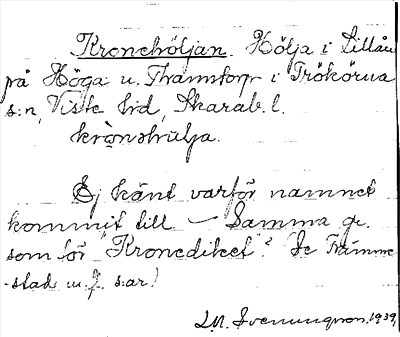 Kronehöljan. Hölja i Lillån
på Höga u. Framtorp i Trökörna
s:n, Viste hd, Skarab. l.
krònəhulja.
Ej känt varför namnet
kommit till. — Samma gr.
som för "Kronediket"? Se Främme-
stad m. fl. s:ar!
L.M. Svenungsson. 1939.